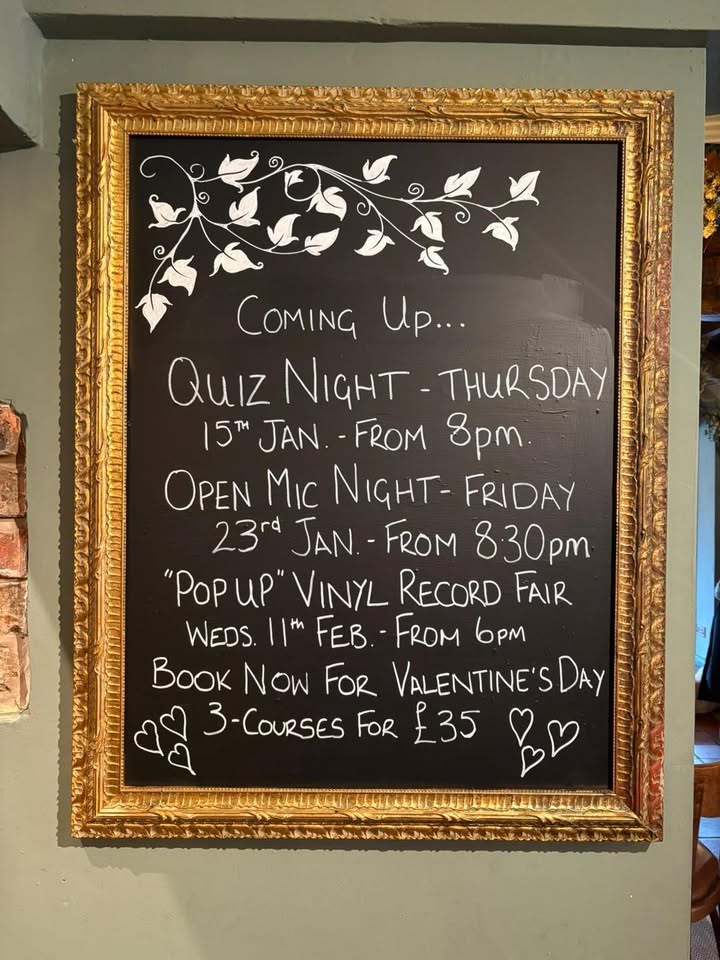 Coming Up...
QUIZ NIGHT - THURSDAY
15TH JAN. - FROM 8pm.
OPEN MIC NIGHT - FRIDAY
23rd JAN. - FROM 8.30pm
"POP UP" VINYL RECORD FAIR
WEDS. 11th FEB. - FROM 6pm
BOOK NOW FOR VALENTINE'S DAY
3-COURSES FOR £35